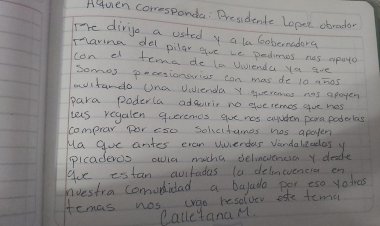 Aquien corresponda: Presidente Lopez obrador
me dirijo a usted y a la Gobernadora
Marina del pilar que le pedimos nos apoyo
con el tema de la Uvienda ya que
Somos posesionarios con mas de 10 años
avitando Una Uivienda y queremos nos apoyen
para Poderla adquirir no queremos que nos
las regalen queremos que nos ayuden para poderlas
comprar Por eso Solicitamos nos apollen
Ya que antes eran Uiviendas Vandalizadas y
picaderos avia mucha delincuencia y desde
que estan avitadas la delincuencia en
nuestra Comunidad a bajado por eso yotros
temas nos urge resolver este tema
Calletana M.